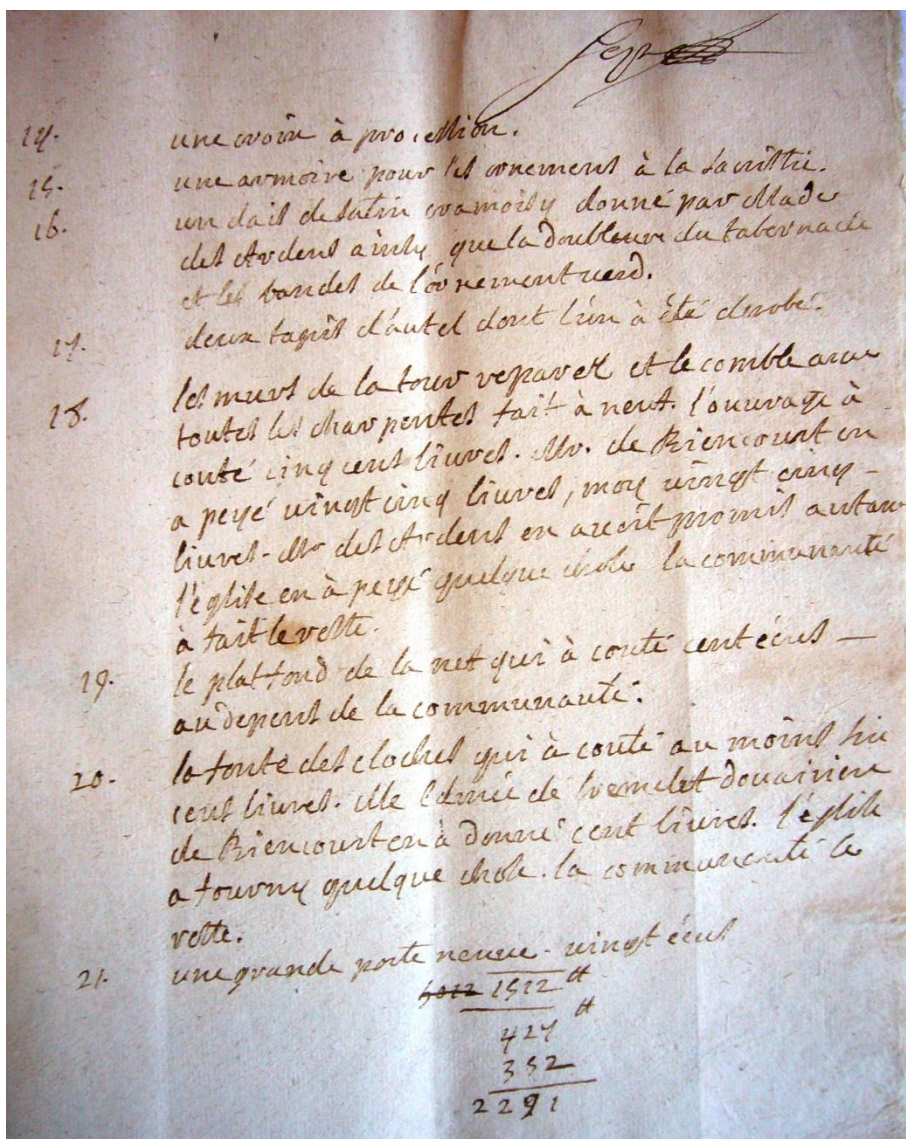 Sept
14. une croix à procession.
15. une armoire pour les ornemens à la sacristie.
16. un dais de satin cramoisy donné par Made
des Ardens ainsy que la doubleure du tabernacle
et les bandes de l'ornement verd.
17. deux tapis d'autel dont l'un à été derobé.
18. les murs de la tour reparez et le comble avec
toutes les charpentes fait à neuf. l'ouvrage à
couté cinq cens livres. Mr. de Riencourt en
a peyé vingt cinq livres, moy vingt cinq -
livres - Mr des Ardens en avoit promis autant
l'eglise en à peyé quelque chose la communauté
à fait le reste.
19. le plat fond de la nef qui à couté cent écus —
au depens de la communauté.
20. la fonte des cloches qui à couté au moins six
cens livres. Me de douairiere
de Riencourt en à donné cent livres. l'eglise
a fourny quelque chose. la communauté le
reste.
21. une grande porte neuve - vingt écus
1512 ₶
427 ₶
352
2291